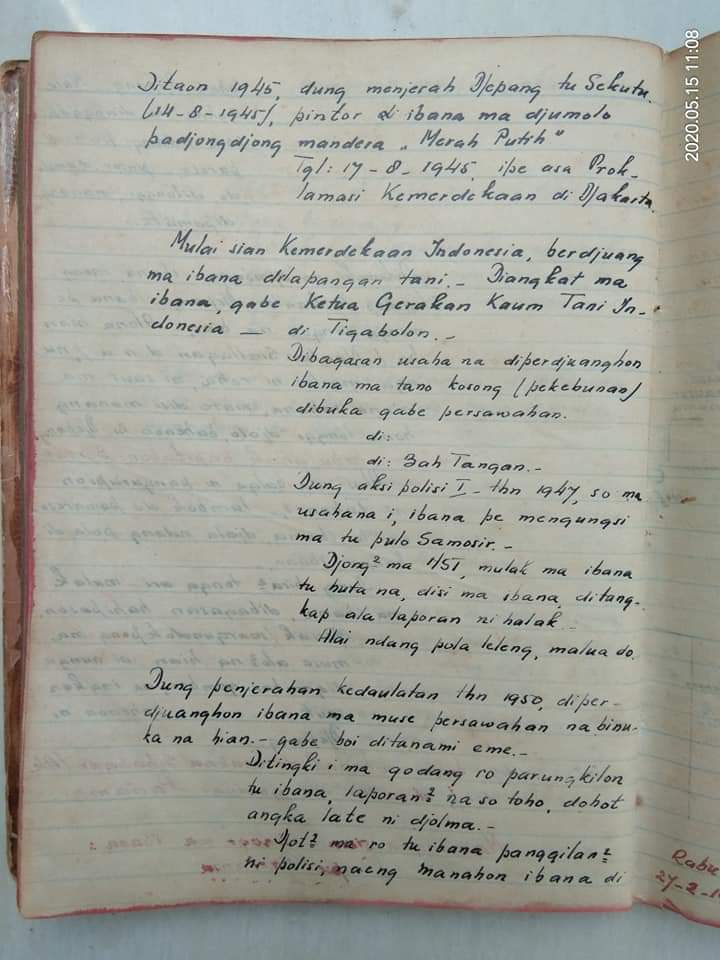 Ditaon 1945, dung menjerah Djepang tu Sekutu.
(14-8-1945), pintor di ibana ma djumolo
padjongdjong mandera „Merah Putih"
Tgl: 17-8-1945, ipe asa Prok-
lamasi Kemerdekaan di Djakarta.
Mulai sian Kemerdekaan Indonesia, berdjuang
ma ibana dilapangan tani.- Diangkat ma
ibana, gabe Ketua Gerakan Kaum Tani In-
donesia — di Tigabolon.-
Dibagasan usaha na diperdjuanghon
ibana ma tano kosong (pekebunan)
dibuka gabe persawahan.
di:
di: Bah Tangan.-
Dung aksi polisi I - thn 1947, so ma
usahana i, ibana pe mengungsi
ma tu pulo Samosir.-
Djong² ma 1/51, mulak ma ibana
tu huta na, disi ma ibana, ditang-
kap ala laporan ni halak.-
Alai ndang pola leleng, malua do.
Dung penjerahan kedaulatan thn 1950, diper-
djuanghon ibana ma muse persawahan na binu-
ka na hian.- gabe boi ditanami eme.-
Ditingki i ma godang ro parungkilon
tu ibana, laporan² na so toho, dohot
angka late ni djolma.-
Djot² ma ro tu ibana panggilan²
ni polisi, naeng manahon ibana di
Rabu
27-2-1
2020.05.15 11:08